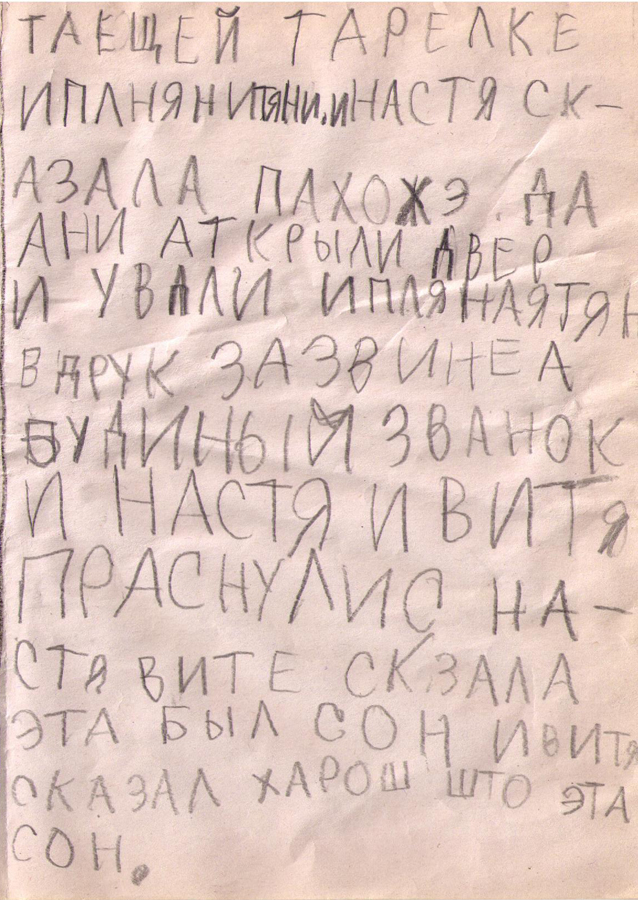 ТАЕЩЕЙ ТАРЕЛКЕ
ИПЛНЯНИТЯНИ.ИНАСТЯ СК-
АЗАЛА ПАХОЖЭ.ДА
АНИ АТКРЫЛИ ДВЕР
И УВАЛИ ИПЛЯНАЯТЯН
ВДРУК ЗАЗВИНЕА
БУДИНЫЙ ЗВАНОК
И НАСТЯ И ВИТЯ
ПРАСНУЛИС НА-
СТЯ ВИТЕ СКЗАЛА
ЭТА БЫЛ СОН ИВИТЯ
СКАЗАЛ ХАРОШ ШТО ЭТА
СОН.